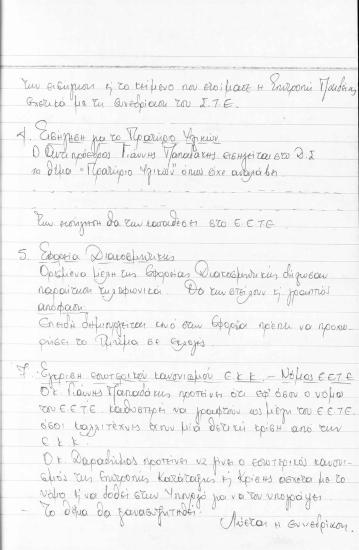 την εισήγηση ή το κείμενο που ετοίμασε η Επιτροπή Παιδείας
σχετικά με τη συνεδρίαση του Σ.Τ.Ε.
4. Εισήγηση για το Πρατήριο Υλικών
Ο Αντιπρόεδρος Γιάννης Παπαδάκης εισηγείται στο Δ.Σ
το θέμα "Πρατήριο Υλικών" όπως είχε αναλάβει
Την εισήγηση θα την καταθέσει στο ΕΕΤΕ
5. Εφορεία Διακοσμητικής
Ορισμένα μέλη της Εφορείας Διακοσμητικής δήλωσαν
παραίτηση τηλεφωνικά. Θα την στείλουν ή γραπτώς
απόφαση.
Επειδή δημιουργείται κενό στην Εφορία πρέπει να προχω-
ρήσει το Τμήμα σε εκλογές.
7. Έγκριση εσωτερικού κανονισμού Ε.Κ.Κ. - Νόμος ΕΕΤΕ
Ο κ. Γιάννης Παπαδάκης προτείνει ότι εφ' όσον ο νόμος
του ΕΕΤΕ καθυστερεί να γραφτούν ως μέλη του ΕΕΤΕ
όσοι καλλιτέχνες έχουν μία θετική κρίση από την
Ε.Κ.Κ.
Ο κ. προτείνει να γίνει ο εσωτερικός κανονι-
σμός της Επιτροπής Κατάταξης ή Κρίσης άσχετα με το
νόμο ή να δοθεί στην Υπουργό για να τον υπογράψει
- Το θέμα θα ξανασυζητηθεί.
Λύεται η συνεδρίαση.